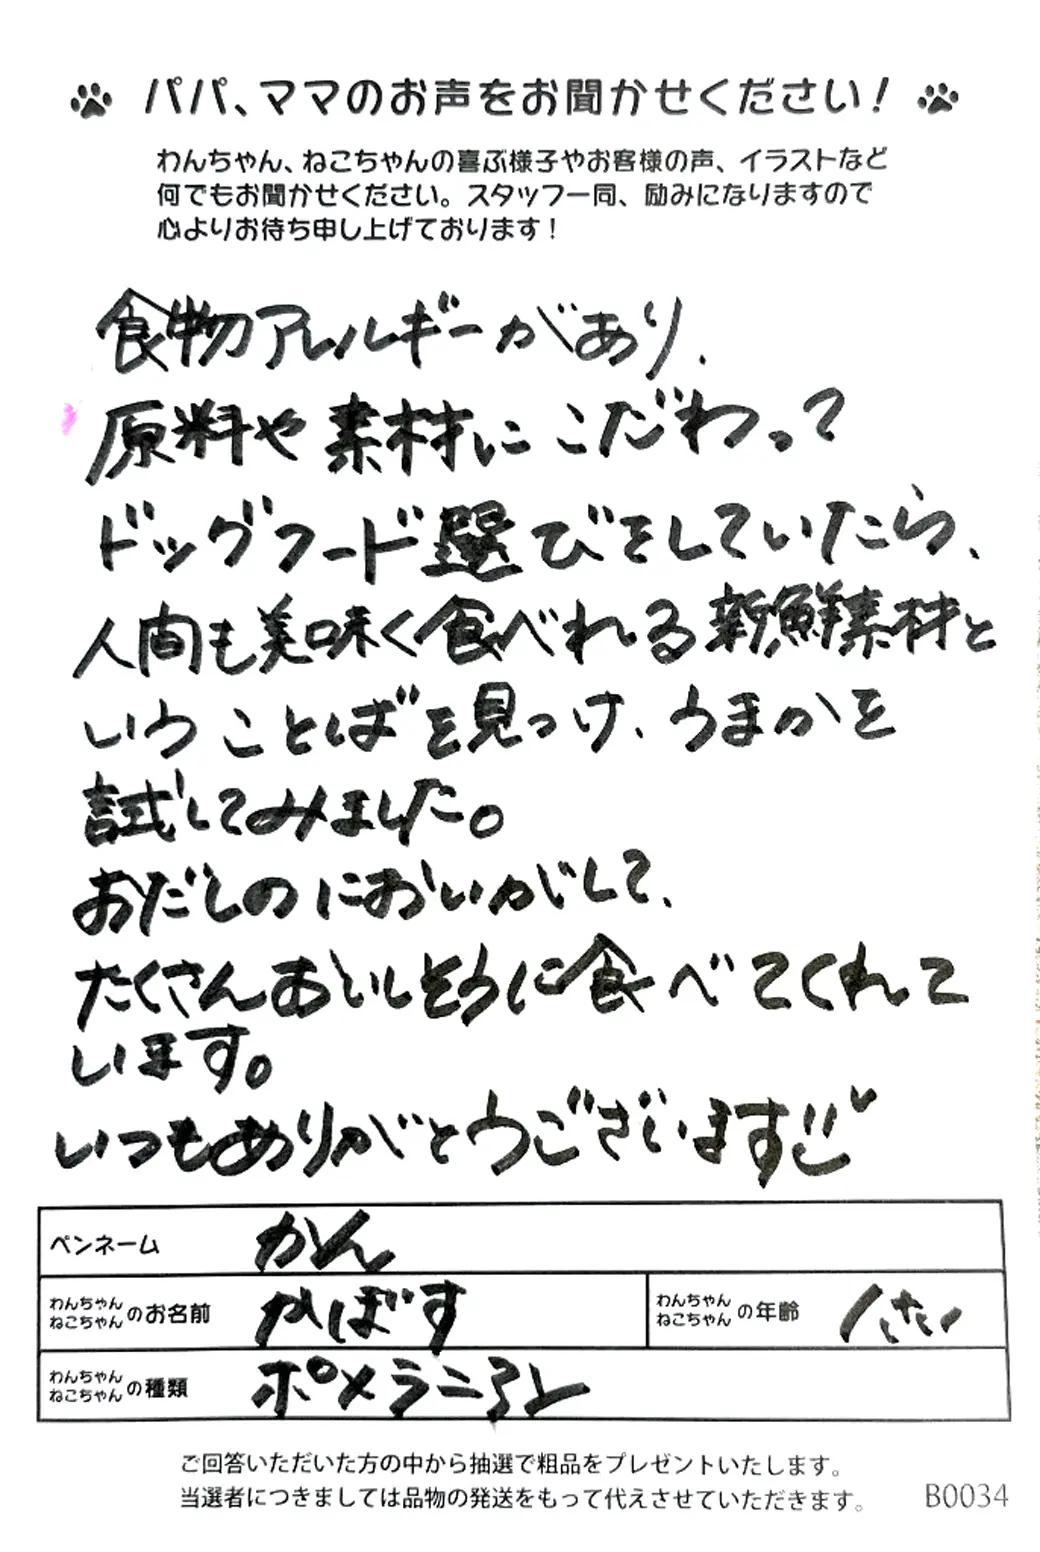 パパ、ママのお声をお聞かせください！
わんちゃん、ねこちゃんの喜ぶ様子やお客様の声、イラストなど
何でもお聞かせください。スタッフ一同、励みになりますので
心よりお待ち申し上げております！
食物アレルギーがあり、
原料や素材にこだわって
ドッグフード選びをしていたら、
人間も美味く食べれる新鮮素材と
いうことばを見つけ、うまかを
試してみました。
おだしのにおいがして、
たくさんおいしそうに食べてくれて
います。
いつもありがとうございます
ペンネーム かん
わんちゃん ねこちゃん のお名前 かぼす
わんちゃん ねこちゃん の年齢 1さい
わんちゃん ねこちゃん の種類 ポメラニアン
ご回答いただいた方の中から抽選で粗品をプレゼントいたします。
当選者につきましては品物の発送をもって代えさせていただきます。 B0034